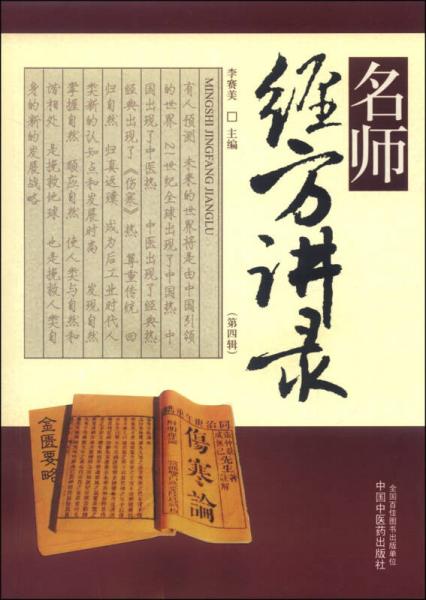 名师
经方讲录
(第四辑)
李赛美 □ 主编
MINGSHI JINGFANG JIANGLU
有人预测 未来的世界将是由中国引领
的世界 21世纪全球出现了中国热 中
国出现了中医热 中医出现了经典热
经典出现了《伤寒》热 尊重传统 回
归自然 归真返璞 成为后工业时代人
类新的认知点和发展时尚 发现自然
掌握自然 顺应自然 使人类与自然和
谐相处 是挽救地球 也是挽救人类自
身的新的发展战略
傷寒論
金匮要略
全国百佳图书出版单位
中国中医药出版社